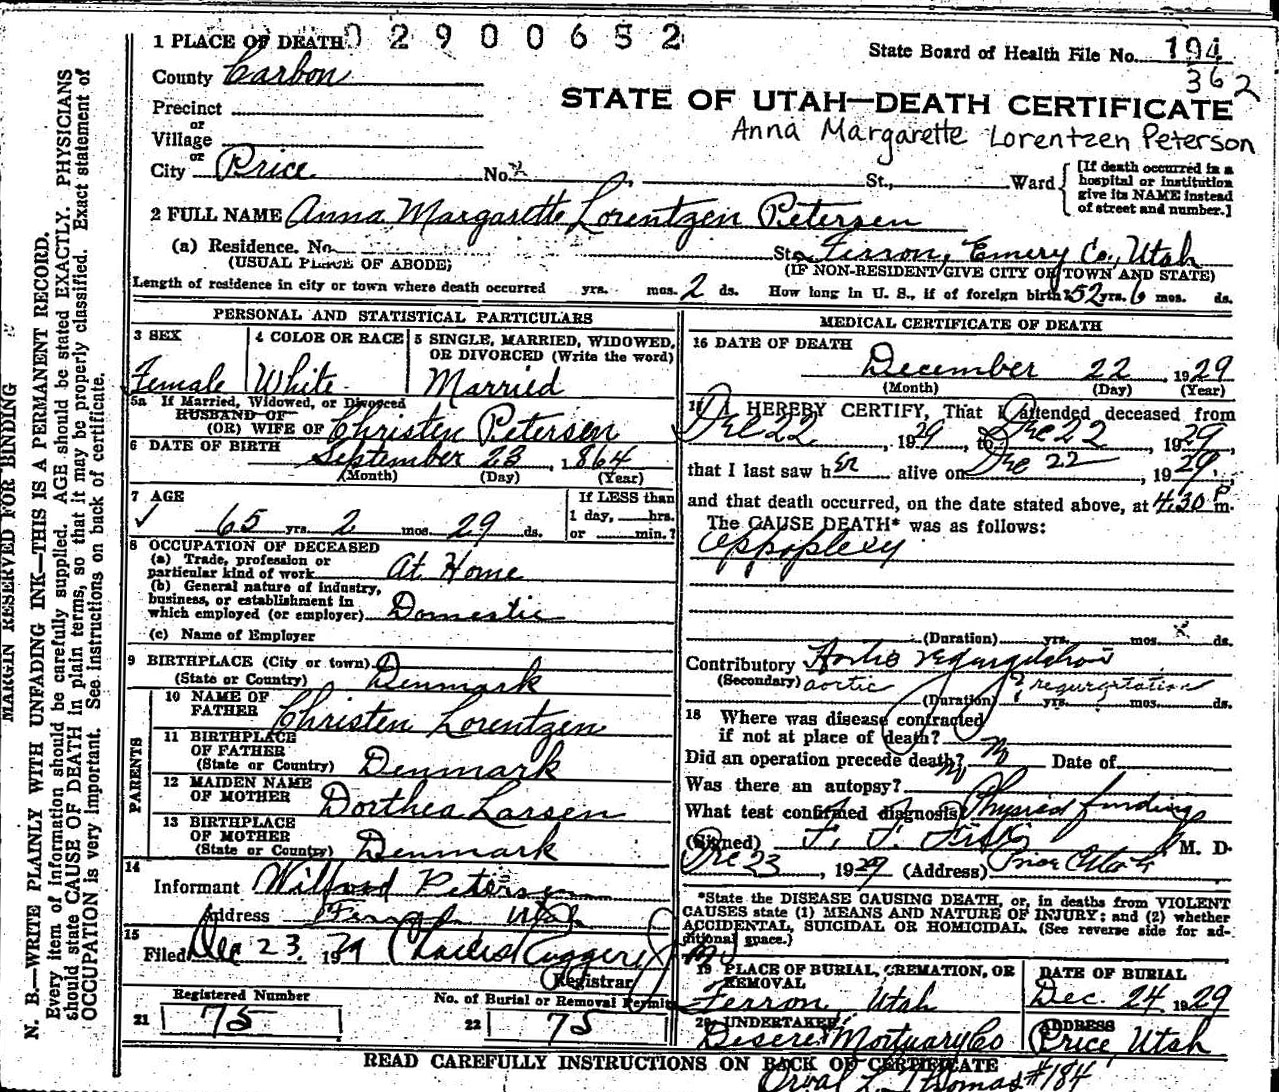 0 2 9 0 0 6 5 2
1 PLACE OF DEATH
State Board of Health File No. 194
362
County Carbon
STATE OF UTAH—DEATH CERTIFICATE
Anna Margarette Lorentzen Peterson
Precinct
or
Village
or
City Price No. St., Ward
[If death occurred in a hospital or institution give its NAME instead of street and number.]
2 FULL NAME Anna Margarette Lorentzen Petersen
(a) Residence. No. St. Ferron, Emery Co., Utah
(USUAL PLACE OF ABODE) (IF NON-RESIDENT GIVE CITY OR TOWN AND STATE)
Length of residence in city or town where death occurred yrs. mos. 2 ds. How long in U. S., if of foreign birth? 52 yrs. 6 mos. ds.
PERSONAL AND STATISTICAL PARTICULARS
3 SEX
Female
4 COLOR OR RACE
White
5 SINGLE, MARRIED, WIDOWED, OR DIVORCED (Write the word)
Married
5a If Married, Widowed, or Divorced
HUSBAND OF
(OR) WIFE OF Christen Petersen
6 DATE OF BIRTH
September 23, 1864
(Month) (Day) (Year)
7 AGE
65 yrs. 2 mos. 29 ds.
If LESS than
1 day, hrs.
or min.?
8 OCCUPATION OF DECEASED
(a) Trade, profession or
particular kind of work At Home
(b) General nature of industry,
business, or establishment in
which employed (or employer) Domestic
(c) Name of Employer
9 BIRTHPLACE (City or town)
(State or Country) Denmark
PARENTS
10 NAME OF
FATHER Christen Lorentzen
11 BIRTHPLACE
OF FATHER
(State or Country) Denmark
12 MAIDEN NAME
OF MOTHER Dorthea Larsen
13 BIRTHPLACE
OF MOTHER
(State or Country) Denmark
14
Informant Wilford Petersen
Address Ferron Utah
15
Filed Dec 23, 1929
Registrar
Registered Number
21 75
No. of Burial or Removal Permit
22 75
MEDICAL CERTIFICATE OF DEATH
16 DATE OF DEATH
December 22, 1929
(Month) (Day) (Year)
17 I HEREBY CERTIFY, That I attended deceased from
Dec 22, 1929, to Dec 22, 1929
that I last saw her alive on Dec 22, 1929,
and that death occurred, on the date stated above, at 4:30 P m.
The CAUSE DEATH* was as follows:
Appoplexy
(Duration) yrs. mos. ds.
Contributory Aortic regurgitation
(Secondary) aortic regurgitation
(Duration) yrs. mos. ds.
18 Where was disease contracted
if not at place of death?
Did an operation precede death? No Date of
Was there an autopsy? No
What test confirmed diagnosis? Physical findings
(Signed) M. D.
Dec 23, 1929 (Address) Price Utah
*State the DISEASE CAUSING DEATH, or, in deaths from VIOLENT
CAUSES state (1) MEANS AND NATURE OF INJURY; and (2) whether
ACCIDENTAL, SUICIDAL OR HOMICIDAL. (See reverse side for ad-
ditional space.)
19 PLACE OF BURIAL, CREMATION, OR
REMOVAL
Ferron, Utah
DATE OF BURIAL
Dec. 24, 1929
20 UNDERTAKER
Deseret Mortuary Co
ADDRESS
Price, Utah
READ CAREFULLY INSTRUCTIONS ON BACK OF CERTIFICATE
Orval L Thomas #184
MARGIN RESERVED FOR BINDING
N. B.—WRITE PLAINLY WITH UNFADING INK—THIS IS A PERMANENT RECORD.
Every item of information should be carefully supplied. AGE should be stated EXACTLY. PHYSICIANS
should state CAUSE OF DEATH in plain terms, so that it may be properly classified. Exact statement of
OCCUPATION is very important. See instructions on back of certificate.